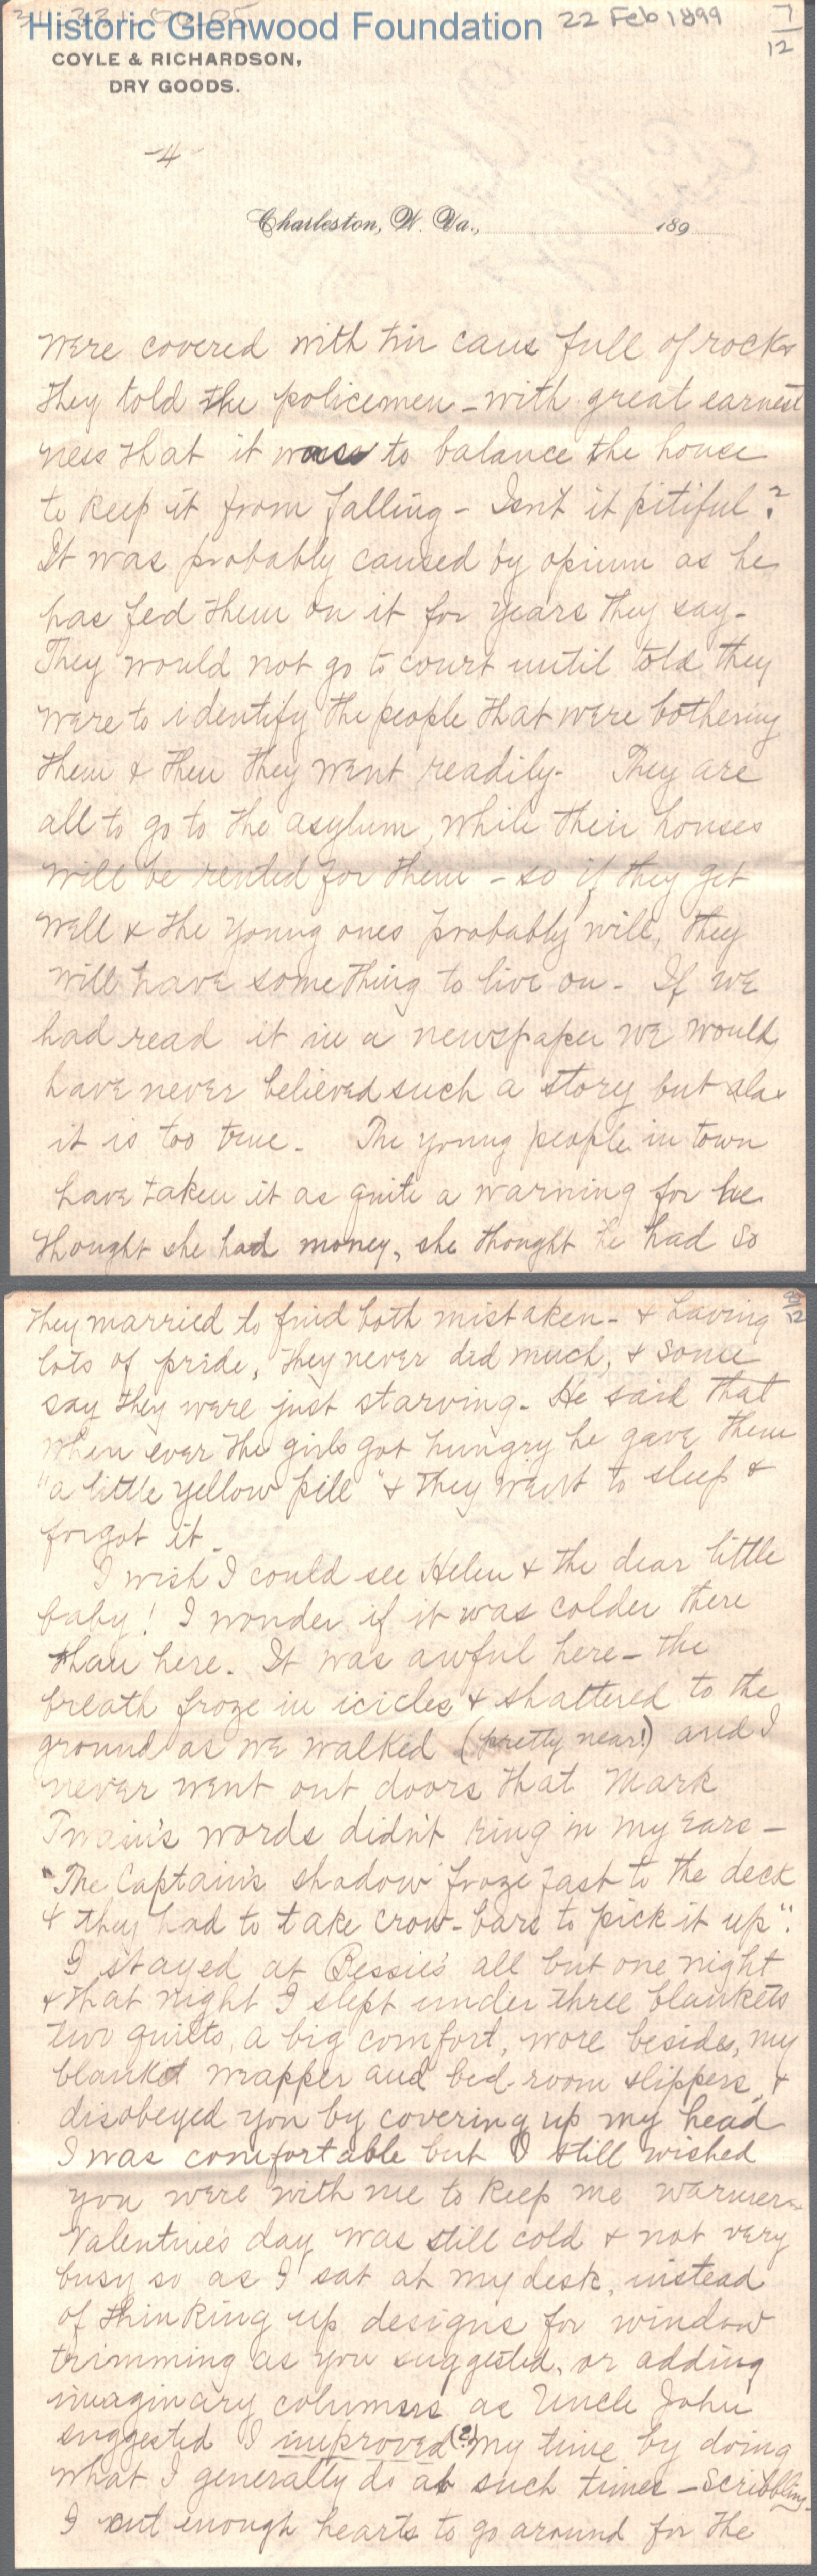 Historic Glenwood Foundation 22 Feb 1899 7/12
COYLE & RICHARDSON,
DRY GOODS.
-4-
Charleston, W. Va., 189
were covered with tin cans full of rocks
they told the policemen - with great earnest
ness that it was to balance the house
to keep it from falling - Isn't it pitiful?
It was probably caused by opium as he
has fed them on it for years they say -
They would not go to court until told they
were to identify the people that were bothering
them & then they went readily - They are
all to go to the asylum, while their houses
will be rented for them - so if they get
well & the young ones probably will, they
will have something to live on - If we
had read it in a newspaper we would
have never believed such a story but alas
it is too true - The young people in town
have taken it as quite a warning for he
thought she had money, she thought he had so
they married to find both mistaken - & having 8/12
lots of pride, they never did much, & some
say they were just starving - He said that
when ever the girls got hungry he gave them
"a little yellow pill" & they went to sleep &
forgot it -
I wish I could see Helen & the dear little
baby! I wonder if it was colder there
than here. It was awful here - the
breath froze in icicles & shattered to the
ground as we walked (pretty near!) and I
never went out doors that Mark
Twain's words didn't ring in my ears -
"The Captain's shadow froze fast to the deck
& they had to take crow-bars to pick it up".
I stayed at Bessie's all but one night
& that night I slept under three blankets
two quilts, a big comfort, wore besides, my
blanket wrapper and bed-room slippers, &
disobeyed you by covering up my head
I was comfortable but I still wished
you were with me to keep me warmer -
Valentine's day was still cold & not very
busy so as I sat at my desk, instead
of thinking up designs for window
trimming as you suggested, or adding
imaginary columns as Uncle John
suggested I improved (?) my time by doing
what I generally do at such times - Scribbling.
I cut enough hearts to go around for the